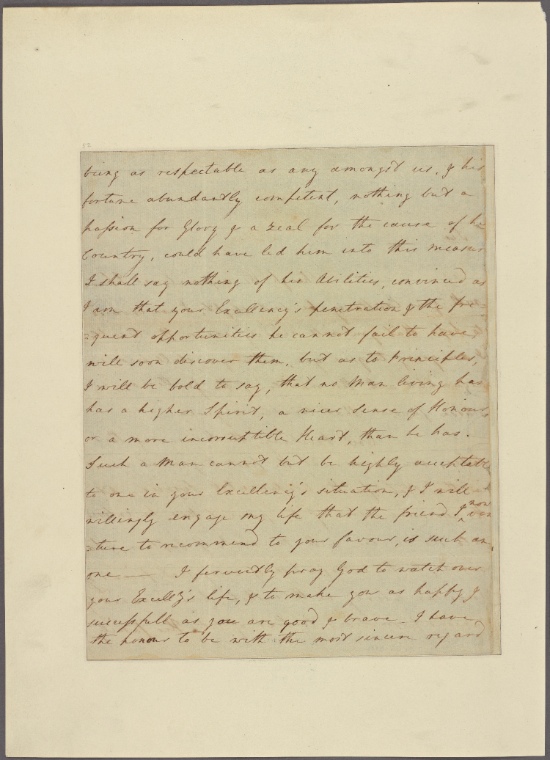 being as respectable as any amongst us, & his
fortune abundantly competent, nothing but a
passion for Glory & a zeal for the cause of his
Country, could have led him into this measure
I shall say nothing of his Abilities, convinced as
I am that your Excellency's penetration & the fre-
=quent opportunities he cannot fail to have,
will soon discover them, but as to Principles,
I will be bold to say, that no Man living has
has a higher Spirit, a nicer sense of Honour,
or a more incorruptible Heart, than he has.
Such a Man cannot but be highly acceptable
to one in your Excellency's situation, & I will
willingly engage my life that the friend I now ven
=ture to recommend to your favour, is such an
one — I fervently pray God to watch over
your Excellcy's life, & to make you as happy &
successfull as you are good & brave. I have
the honour to be with the most sincere regard